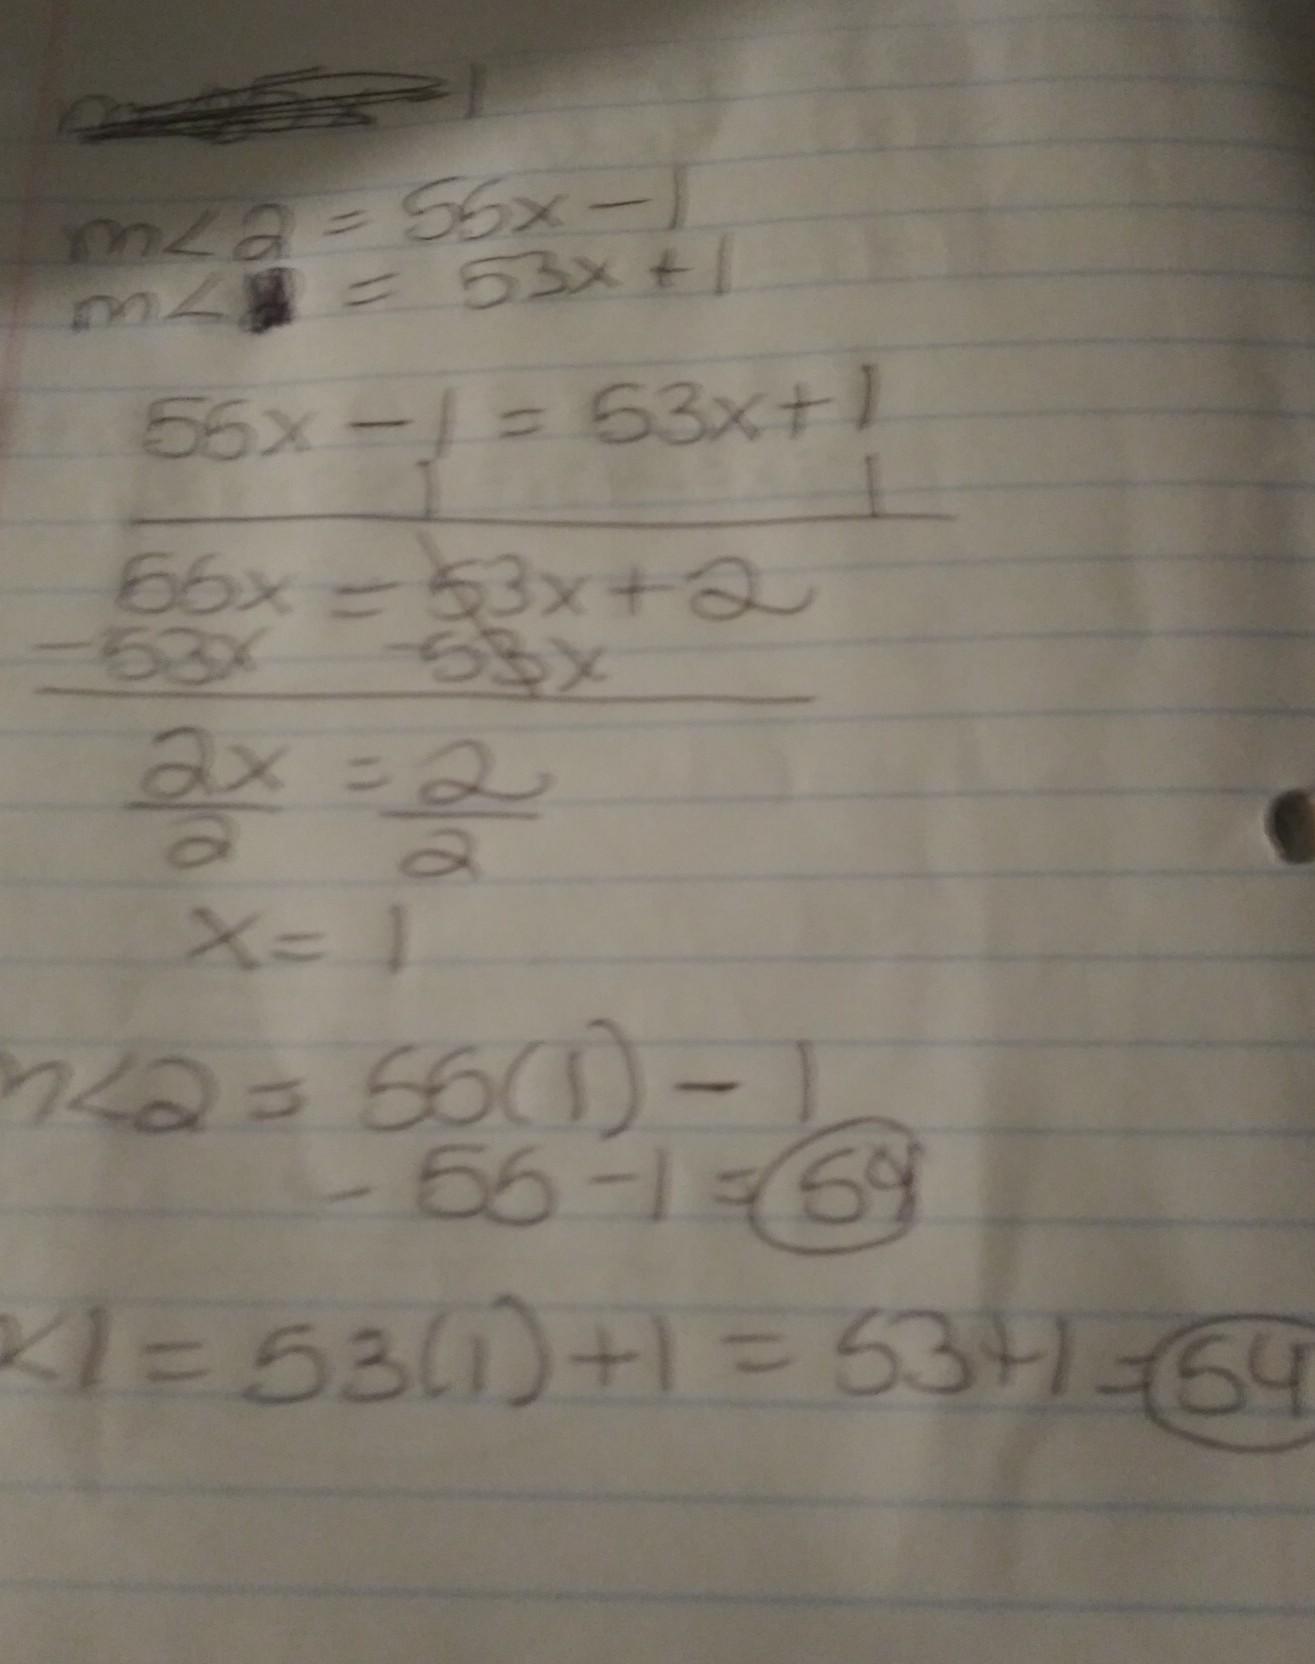 1
m<2 = 55x - 1
m< = 53x + 1
55x - 1 = 53x + 1
1 1
55x = 53x + 2
-53x -53x
2x = 2
2 2
x = 1
m<2 = 55(1) - 1
- 55 - 1 = 54
<1 = 53(1) + 1 = 53 + 1 = 54